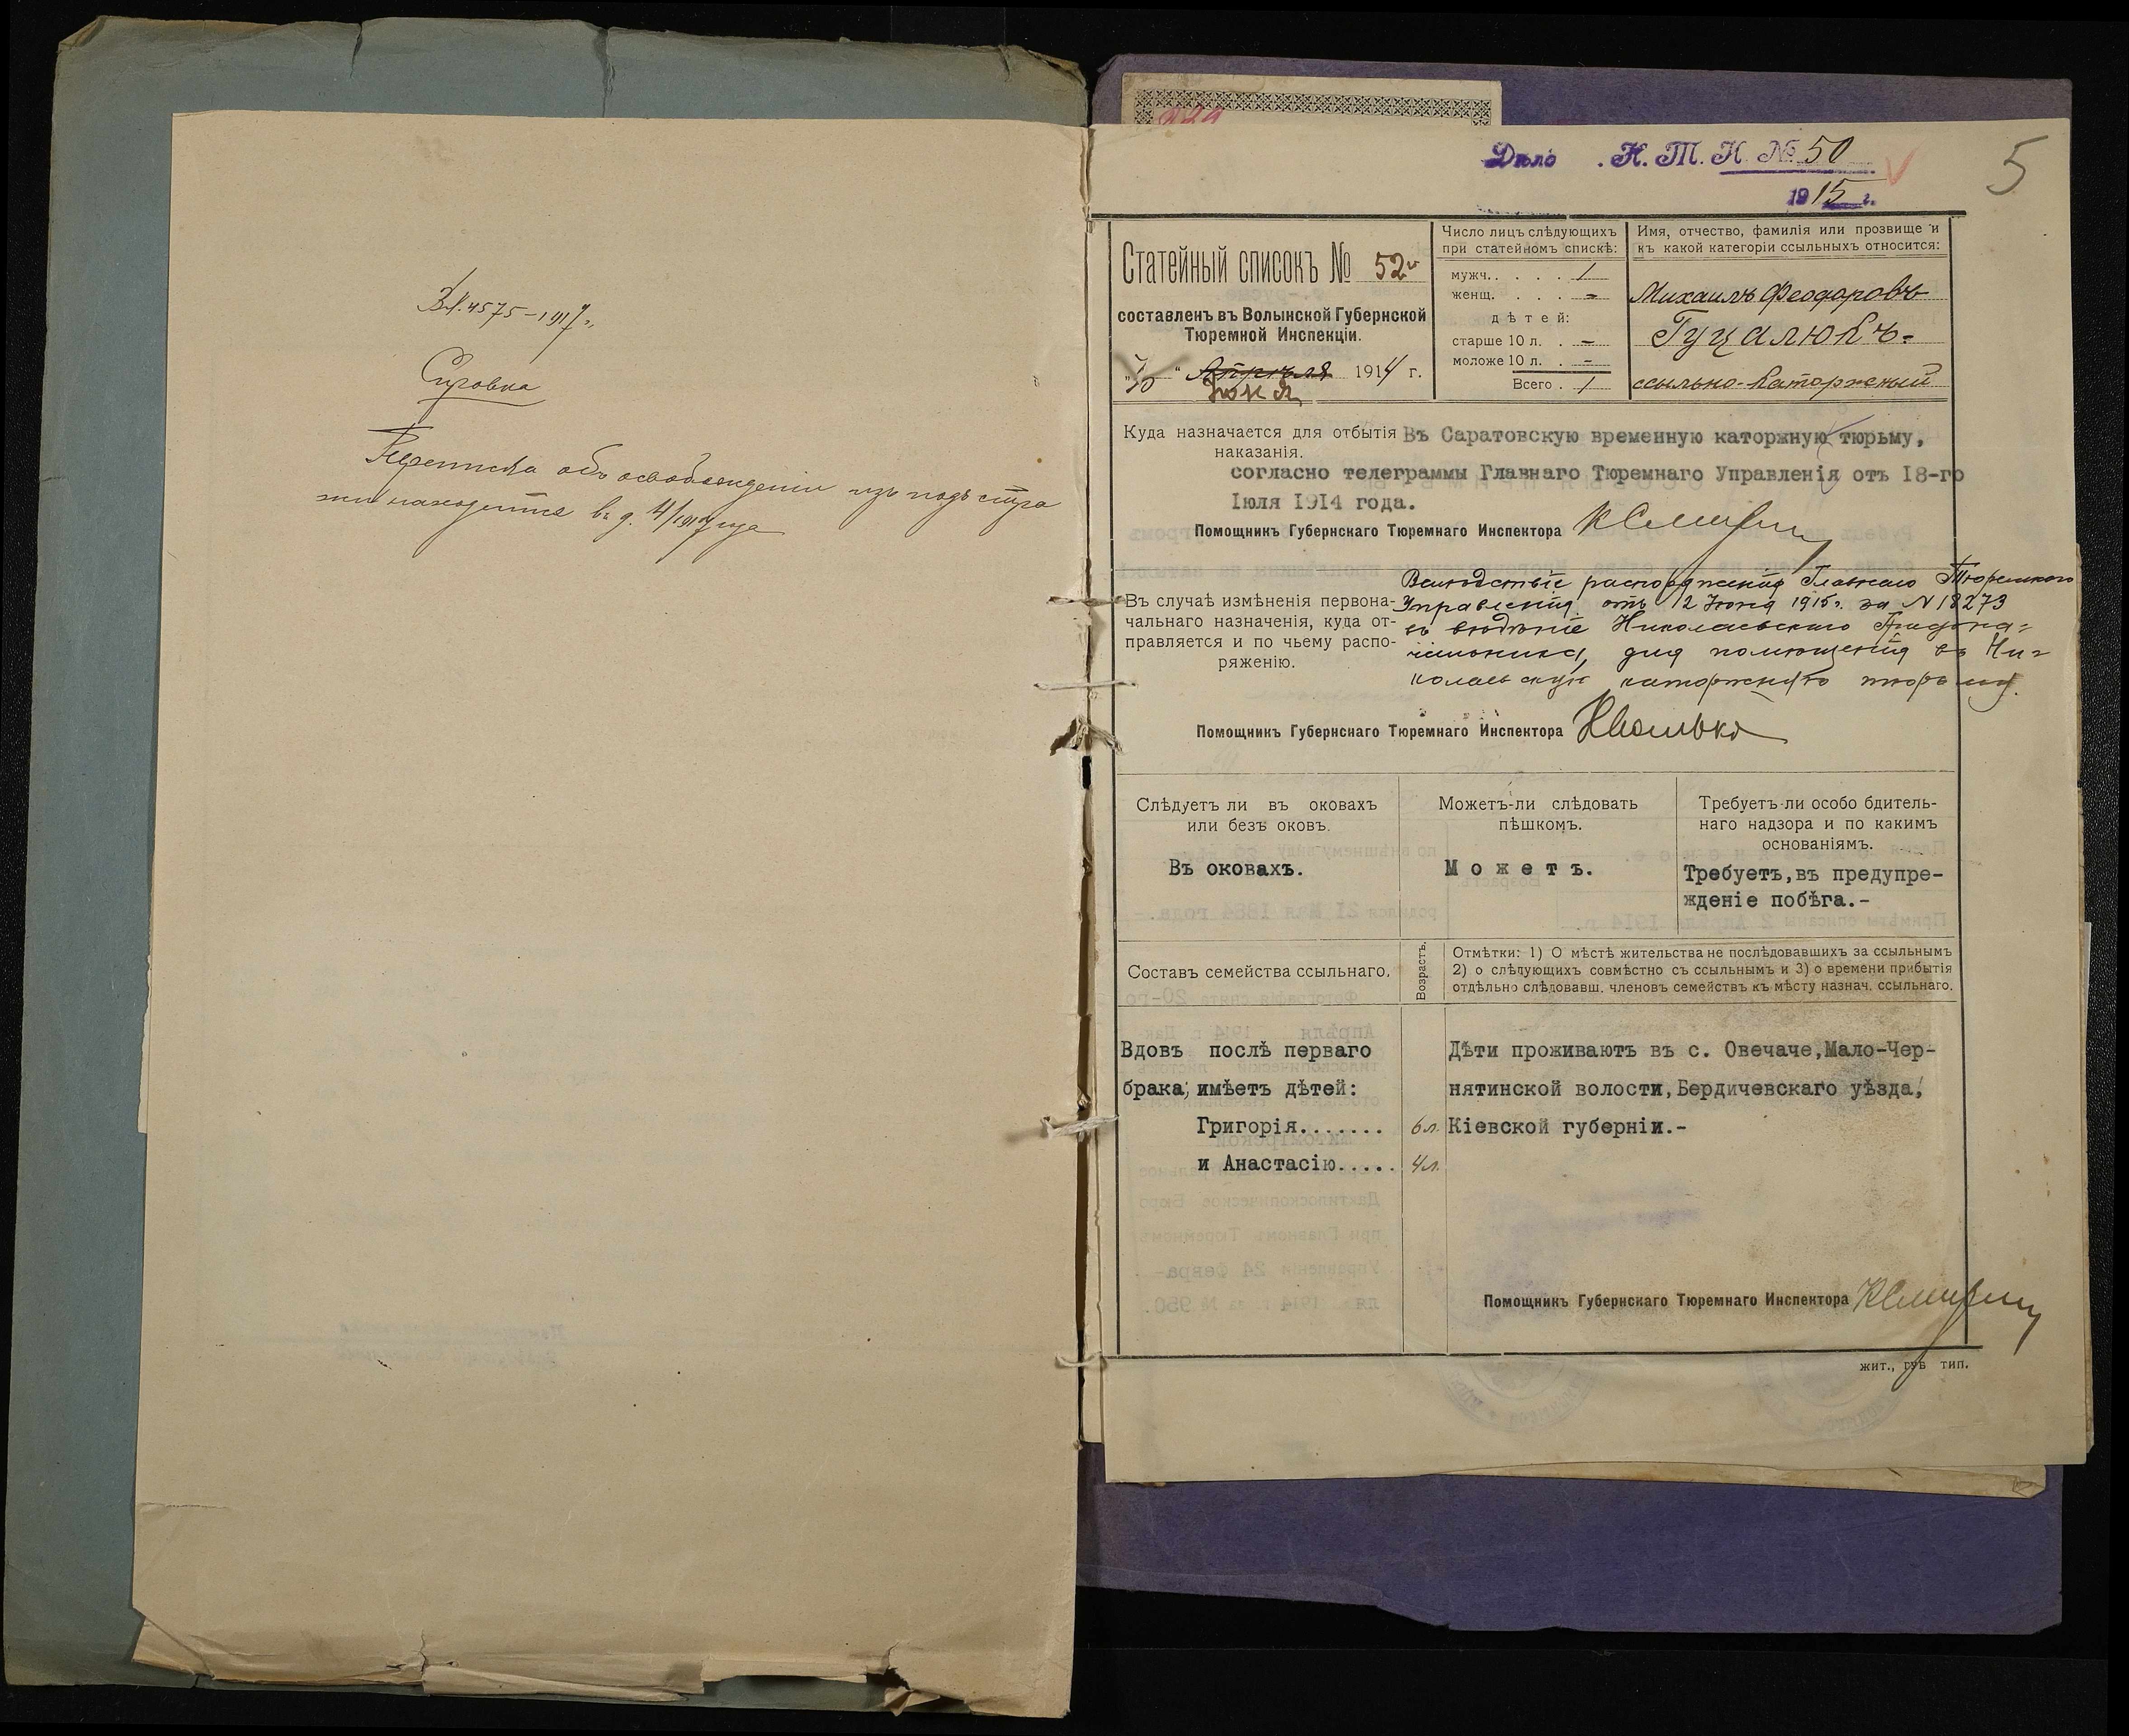 Вх. 4575–1917 г.
Справка
Переписка объ освобожденіи изъ подъ стра
жи находится въ д. 4/1917 года
Дѣло . Н. Т. И. № 50
1915 г.
5
Статейный списокъ № 52
составленъ въ Волынской Губернской
Тюремной Инспекціи.
Апрѣля 1914 г.
Число лицъ слѣдующихъ
при статейномъ спискѣ:
мужч. . . . . 1
женщ. . . . . -
дѣтей:
старше 10 л. . -
моложе 10 л. . -
Всего . 1
Имя, отчество, фамилія или прозвище и
къ какой категоріи ссыльныхъ относится:
Михаилъ Феодоровъ
Гуцалюкъ-
ссыльно-каторжный
Куда назначается для отбытія
наказанія.
Въ Саратовскую временную каторжную тюрьму,
согласно телеграммы Главнаго Тюремнаго Управленія отъ 18-го
Iюля I9I4 года.
Помощникъ Губернскаго Тюремнаго Инспектора
Въ случаѣ измѣненія первона-
чальнаго назначенія, куда от-
правляется и по чьему распо-
ряженію.
Вслѣдствіе распоряженія Главнаго Тюремнаго
Управленія отъ 12 Іюня 1915 г. за N 18273
въ вѣдѣніе Николаевскаго Градона=
чальника, для помѣщенія въ Ни=
колаевскую каторжную тюрьму.
Помощникъ Губернскаго Тюремнаго Инспектора
Слѣдуетъ ли въ оковахъ
или безъ оковъ.
Въ оковахъ.
Можетъ-ли слѣдовать
пѣшкомъ.
Можетъ.
Требуетъ-ли особо бдитель-
наго надзора и по какимъ
основаніямъ.
Требуетъ,въ предупре-
жденіе побѣга.-
Составъ семейства ссыльнаго.
Возрастъ.
Отмѣтки: 1) О мѣстѣ жительства не послѣдовавшихъ за ссыльнымъ
2) о слѣдующихъ совмѣстно съ ссыльнымъ и 3) о времени прибытія
отдѣльно слѣдовавш. членовъ семействъ къ мѣсту назнач. ссыльнаго.
Вдовъ послѣ перваго
брака; имѣетъ дѣтей:
Григорія....... 6 л.
и Анастасію..... 4 л.
Дѣти проживаютъ въ с. Овечаче,Мало-Чер-
нятинской волости,Бердичевскаго уѣзда,
Кіевской губерніи.-
Помощникъ Губернскаго Тюремнаго Инспектора
жит., губ тип.